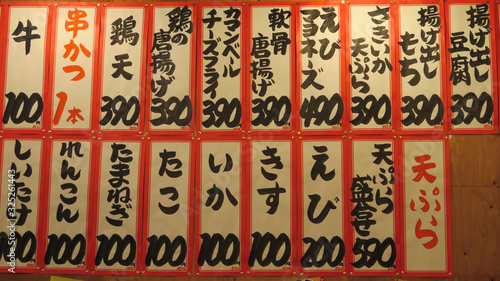 揚げ出し豆腐 390
揚げ出しもち 390
さきいか天ぷら 390
えびマヨネーズ 490
軟骨唐揚げ 390
カマンベールチーズフライ 390
鶏の唐揚げ 390
鶏天 390
串かつ 1本
牛 100
天ぷら
天ぷら盛合 590
えび 200
きす 100
いか 100
たこ 100
たまねぎ 100
れんこん 100
しいたけ 100